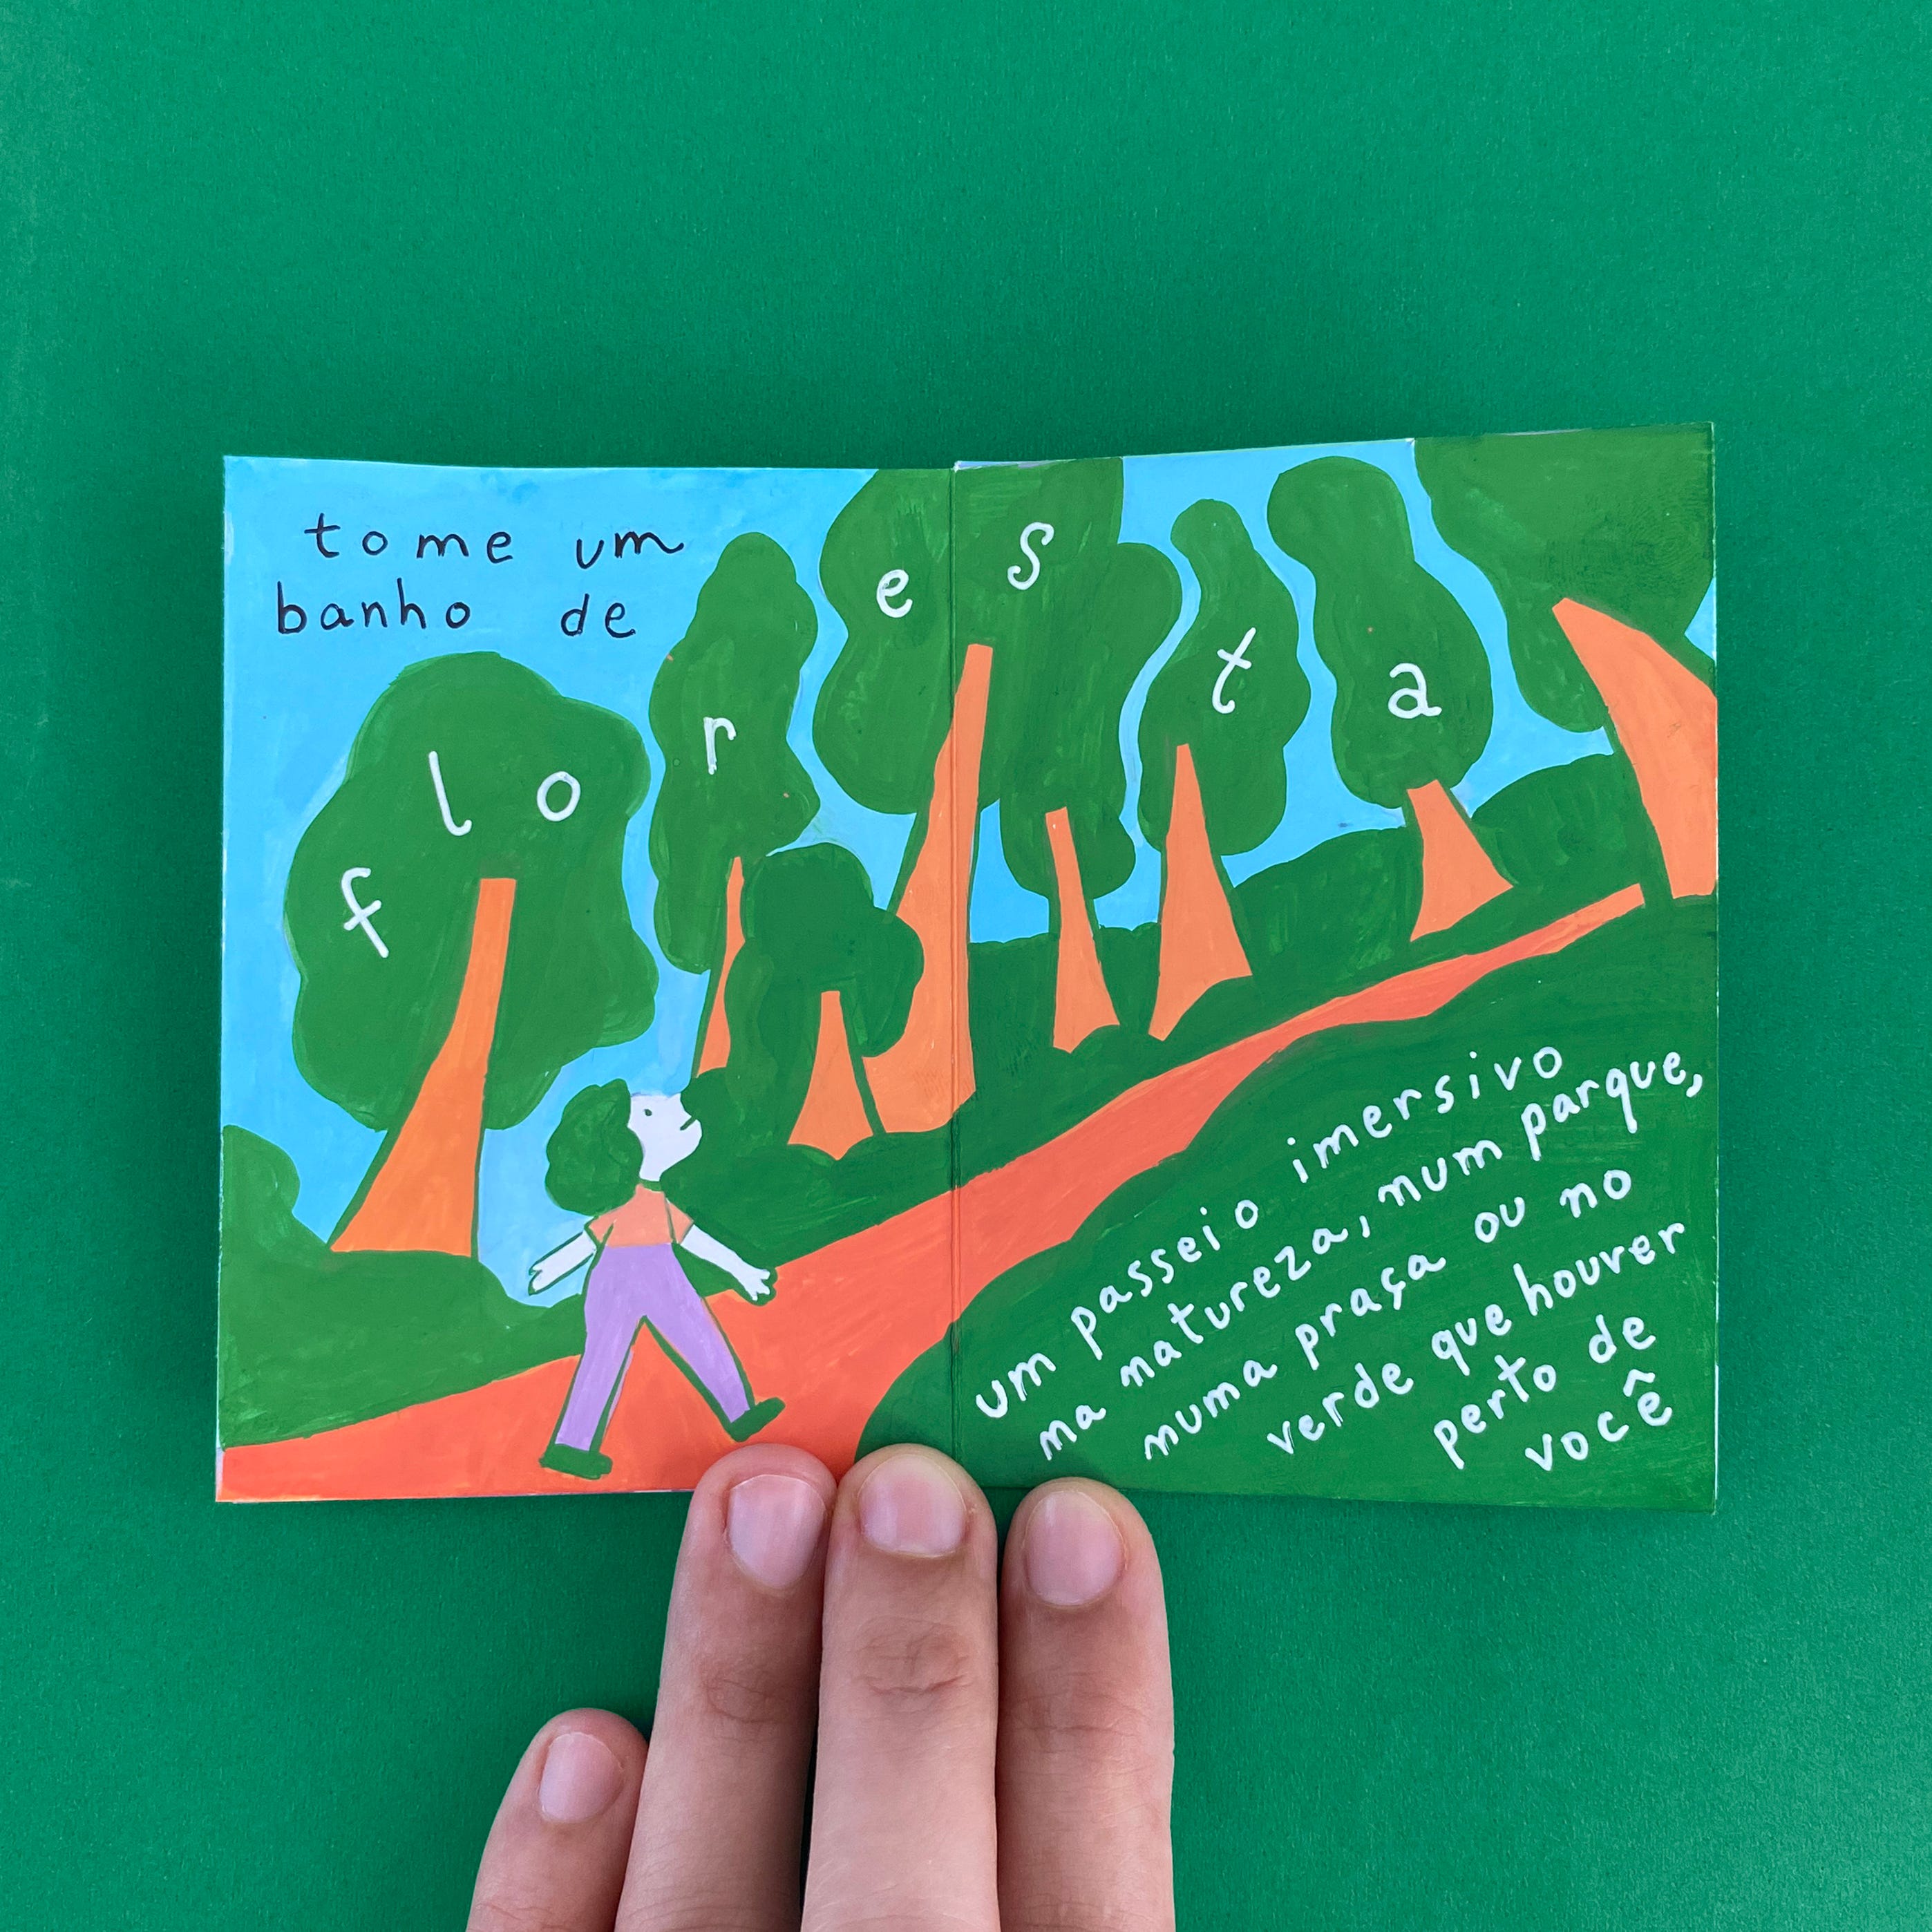 tome um
banho de
floresta
um passeio imersivo
na natureza, num parque,
numa praça ou no
verde que houver
perto de
você